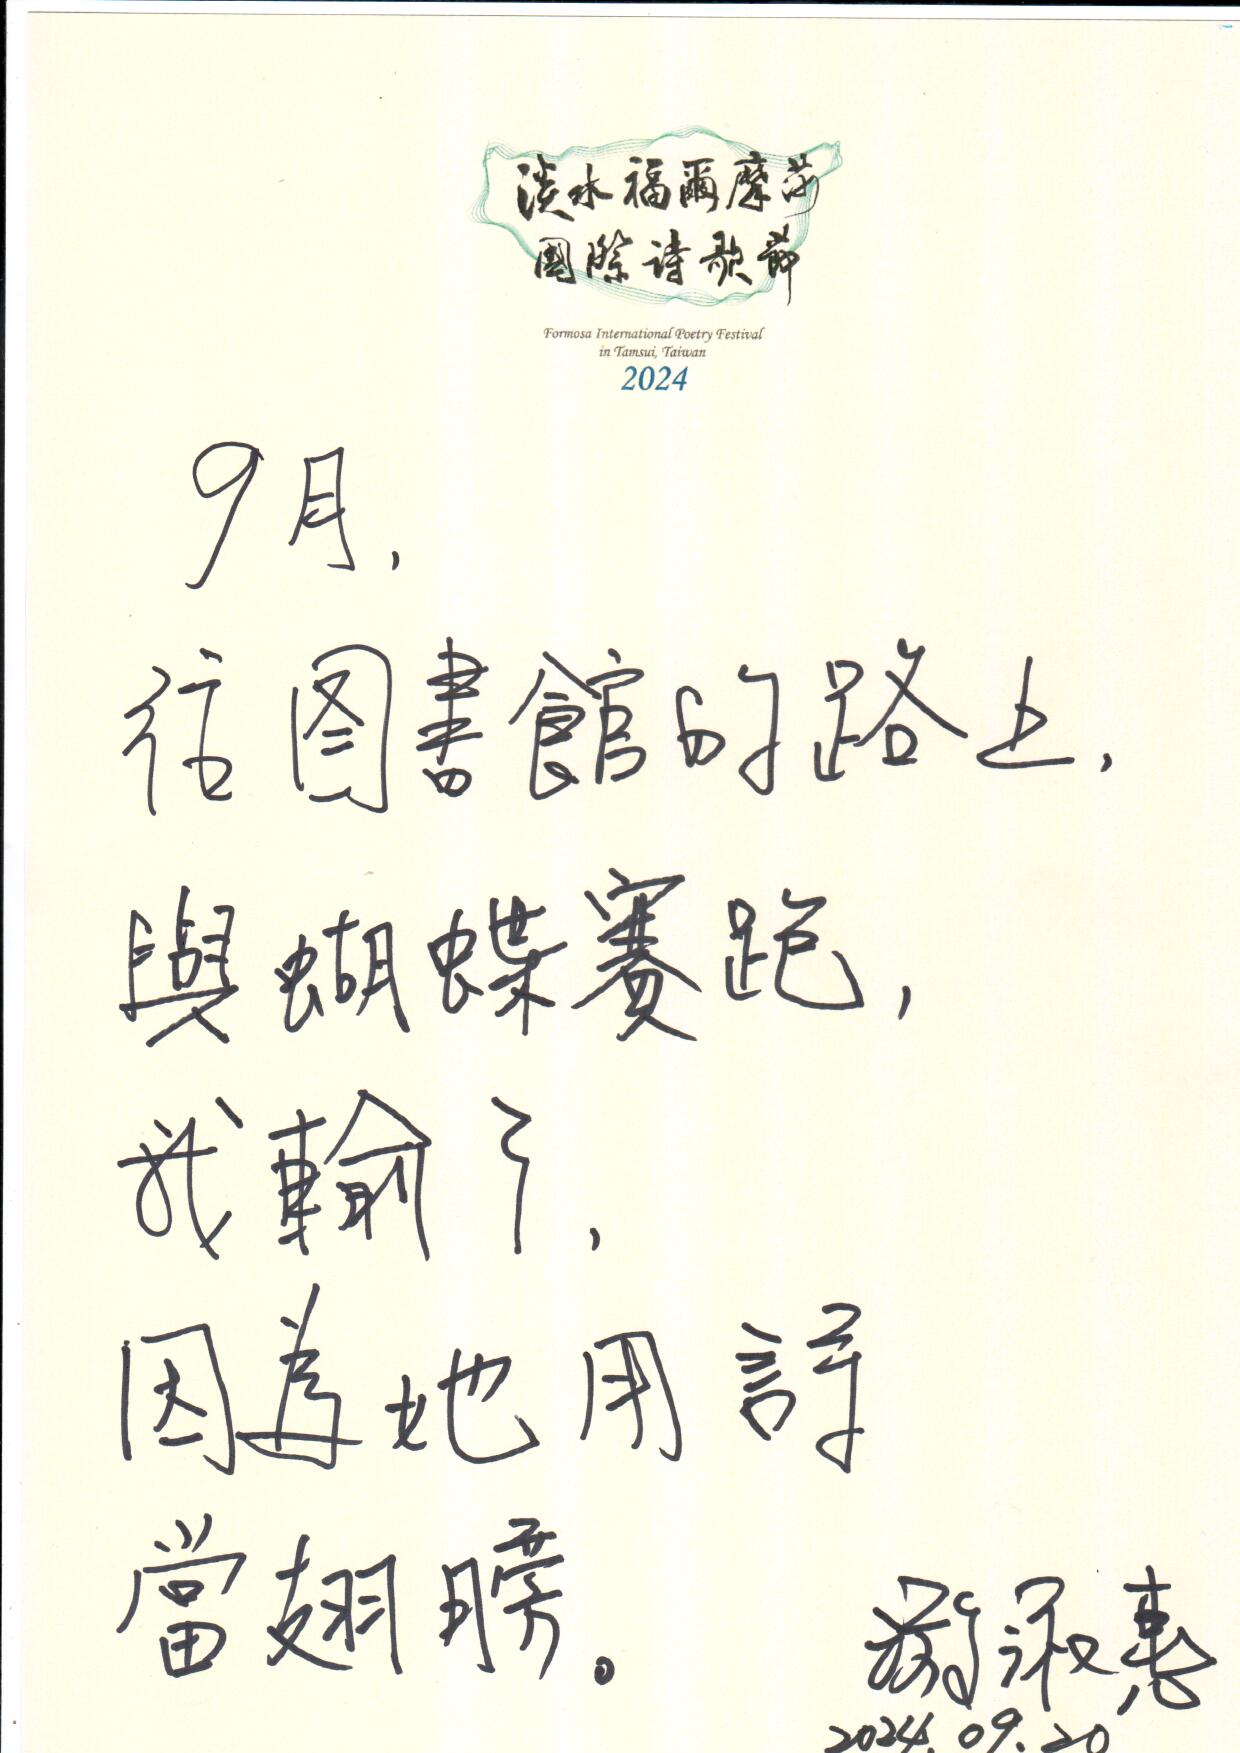 淡水福爾摩莎
國際詩歌節
Formosa International Poetry Festival
in Tamsui, Taiwan
2024
9月,
往图書館的路上,
與蝴蝶賽跑,
我輸了,
因為她用詩
當翅膀。
淑惠
2024.09.20